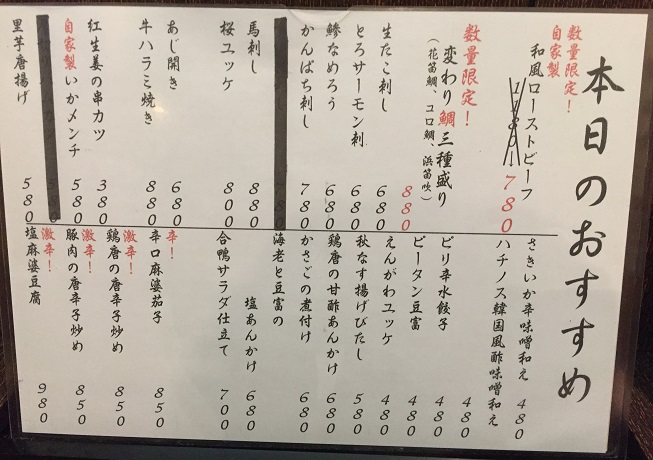 本日のおすすめ
数量限定!
自家製
和風ローストビーフ 780
数量限定!
変わり鯛三種盛り 880
(花笛鯛、コロ鯛、浜笛吹)
生たこ刺し 680
とろサーモン刺 680
鯵なめろう 680
かんぱち刺し 780
馬刺し 880
桜ユッケ 800
あじ開き 680
牛ハラミ焼き 880
紅生姜の串カツ 380
自家製いかメンチ 580
里芋唐揚げ 580
さきいか辛味噌和え 480
ハチノス韓国風酢味噌和え 480
ピリ辛水餃子 480
ピータン豆富 480
えんがわユッケ 480
秋なす揚げびたし 580
鶏唐の甘酢あんかけ 680
かさごの煮付け 680
海老と豆富の
塩あんかけ 680
合鴨サラダ仕立て 700
辛!
辛口麻婆茄子 850
激辛!
鶏唐の唐辛子炒め 850
激辛!
豚肉の唐辛子炒め 850
激辛!
塩麻婆豆腐 980